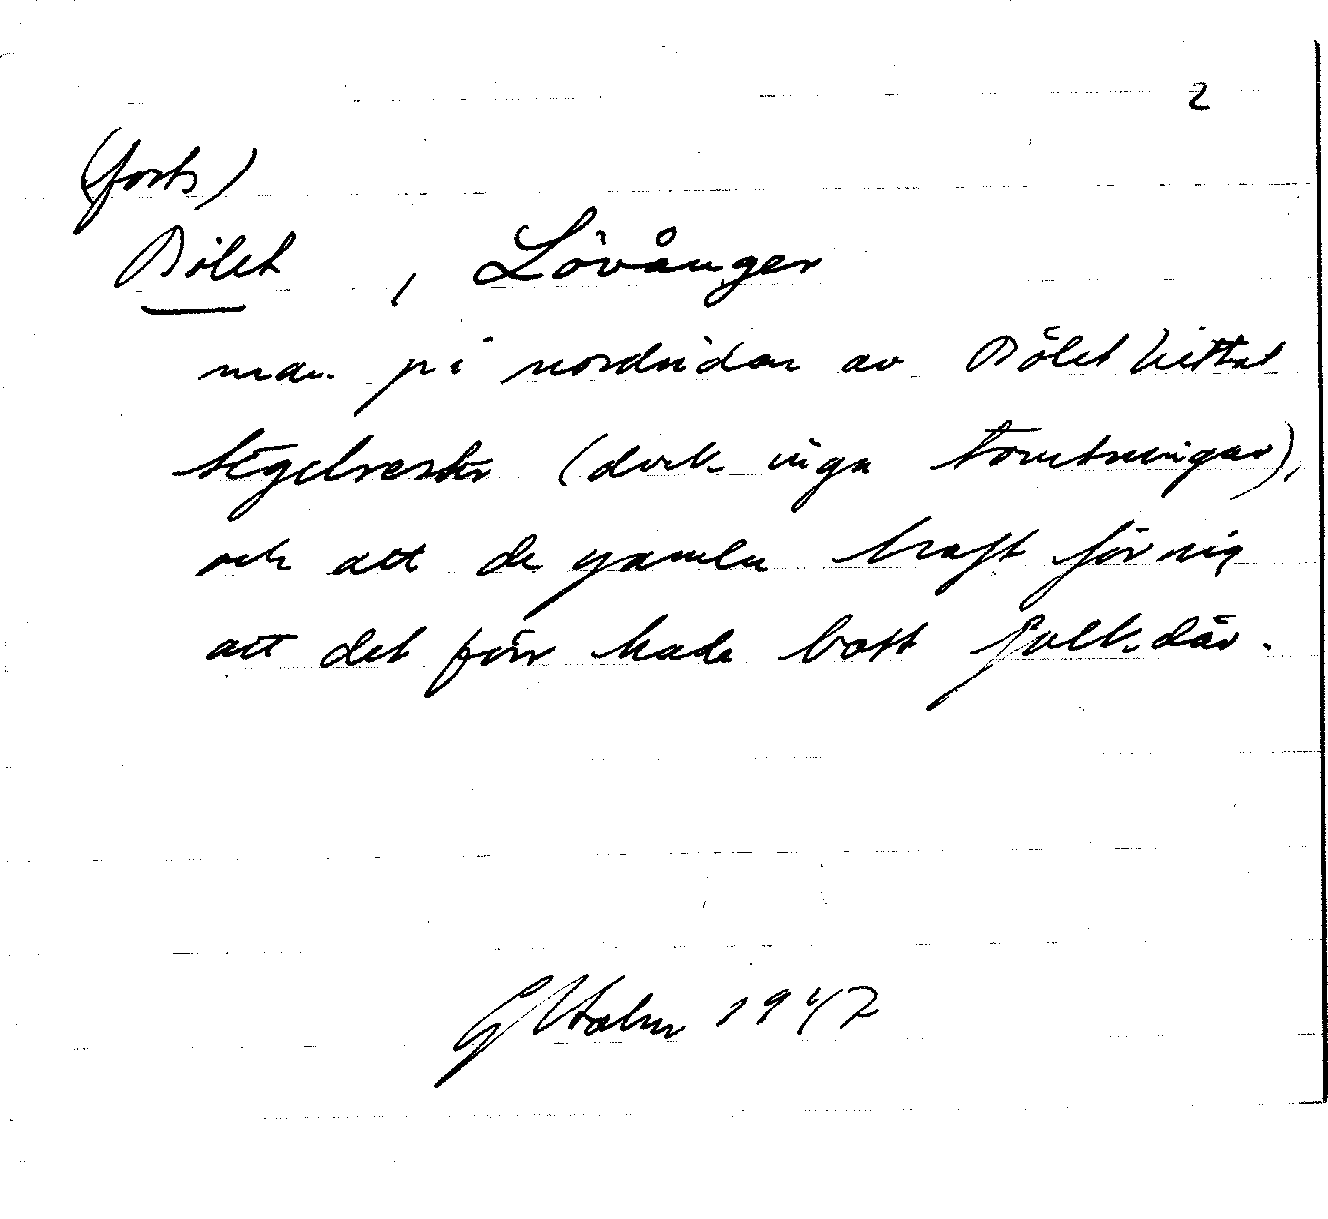 2
(forts)
Bölet , Lövånger
man på nordsidan av Bölet hittat
tegelrester (dock inga tomtningar),
och att de gamla haft för sig
att det förr hade bott folk där.
G Holm 1947